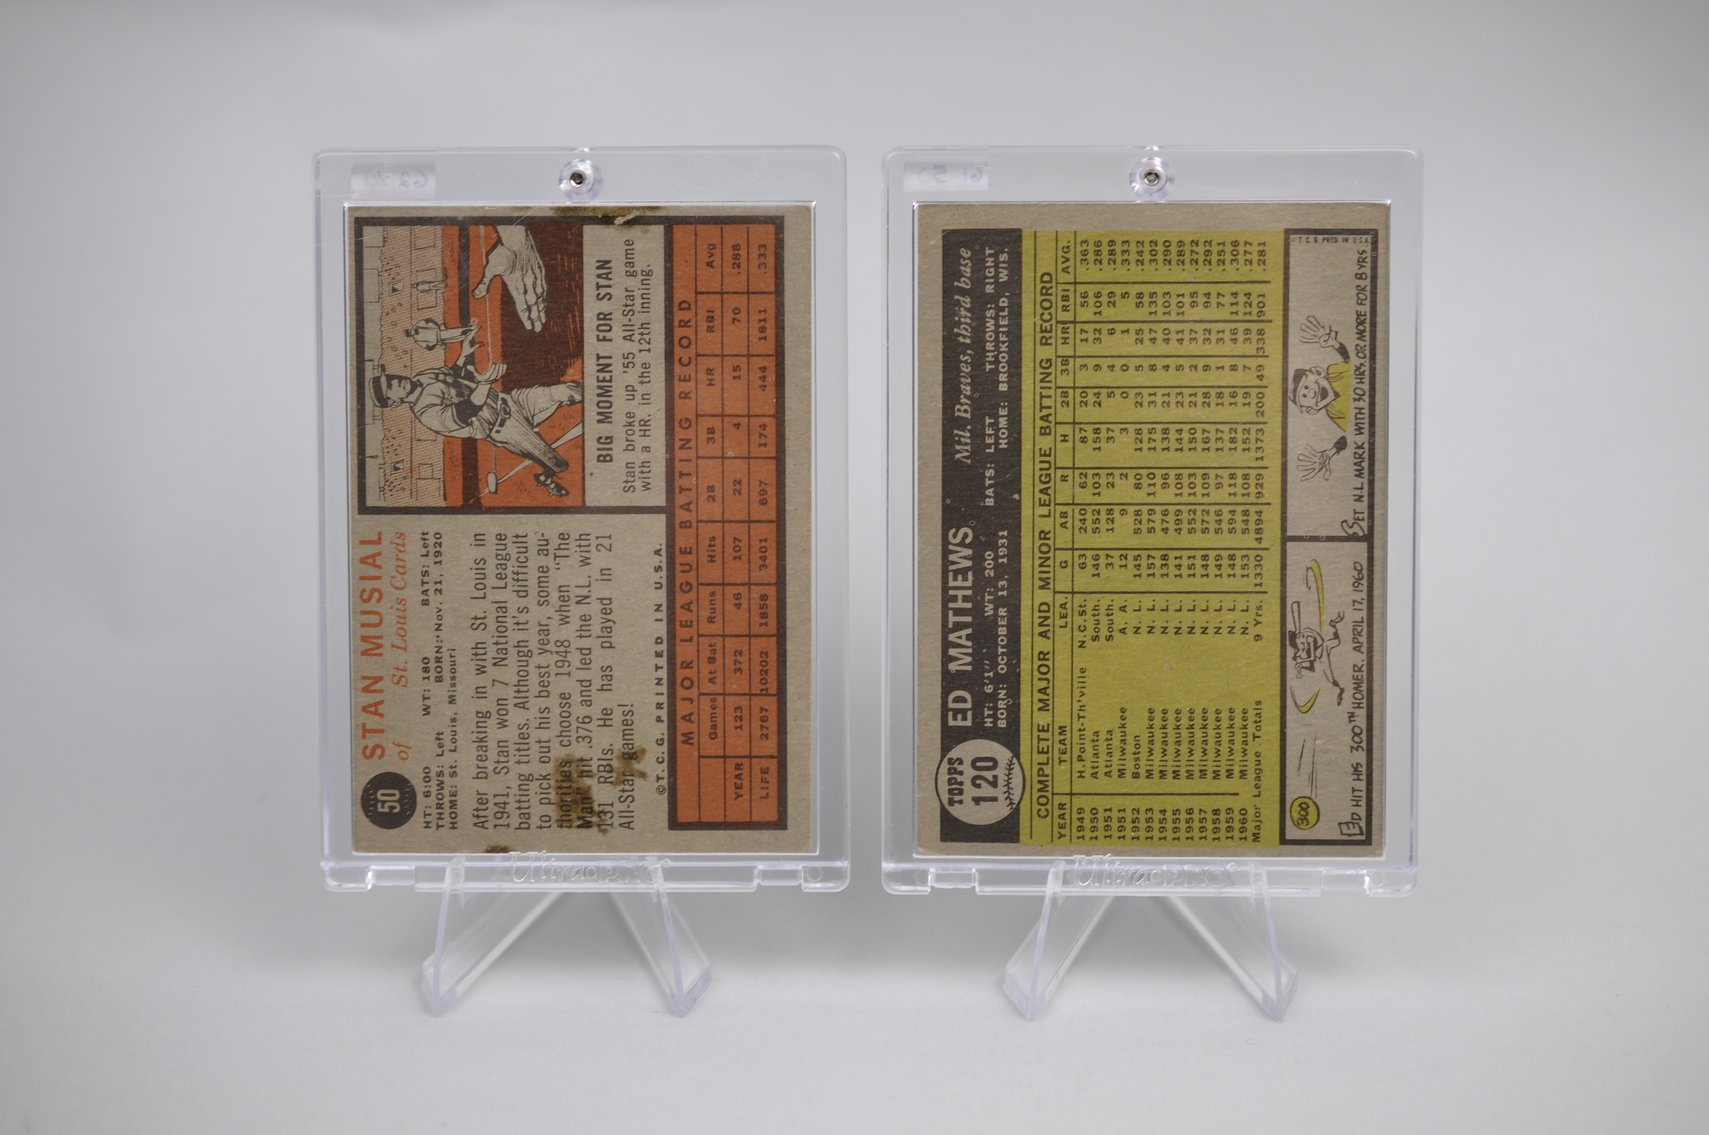 50
STAN MUSIAL
of St. Louis Cards
HT: 6:00 WT: 180 BATS: Left
THROWS: Left BORN: Nov. 21, 1920
HOME: St. Louis, Missouri
After breaking in with St. Louis in
1941, Stan won 7 National League
batting titles. Although it's difficult
to pick out his best year, some au-
thorities choose 1948 when "The
Man" hit .376 and led the N.L. with
131 RBIs. He has played in 21
All-Star games!
©T.C.G. PRINTED IN U.S.A.
BIG MOMENT FOR STAN
Stan broke up '55 All-Star game
with a HR. in the 12th inning.
MAJOR LEAGUE BATTING RECORD
Games At Bat Runs Hits 2B 3B HR RBI Avg
YEAR 123 372 46 107 22 4 15 70 .288
LIFE 2767 10202 1858 3401 697 174 444 1811 .333
Ultra PRO
TOPPS
120
ED MATHEWS Mil. Braves, third base
HT: 6'1" WT: 200 BATS: LEFT THROWS: RIGHT
BORN: OCTOBER 13, 1931 HOME: BROOKFIELD, WIS.
COMPLETE MAJOR AND MINOR LEAGUE BATTING RECORD
YEAR TEAM LEA. G AB R H 2B 3B HR RBI AVG.
1949 H.Point-Th'ville N.C.St. 63 240 62 87 20 3 17 56 .363
1950 Atlanta South. 146 552 103 158 24 9 32 106 .286
1951 Atlanta South. 37 128 23 37 5 4 6 29 .289
1951 Milwaukee A. A. 12 9 2 3 0 0 1 5 .333
1952 Boston N. L. 145 528 80 128 23 5 25 58 .242
1953 Milwaukee N. L. 157 579 110 175 31 8 47 135 .302
1954 Milwaukee N. L. 138 476 96 138 21 4 40 103 .290
1955 Milwaukee N. L. 141 499 108 144 23 5 41 101 .289
1956 Milwaukee N. L. 151 552 103 150 21 2 37 95 .272
1957 Milwaukee N. L. 148 572 109 167 28 9 32 94 .292
1958 Milwaukee N. L. 149 546 97 137 18 1 31 77 .251
1959 Milwaukee N. L. 148 594 118 182 16 8 46 114 .306
1960 Milwaukee N. L. 153 548 108 152 19 7 39 124 .277
Major League Totals 9 Yrs. 1330 4894 929 1373 200 49 338 901 .281
300
ED HIT HIS 300TH HOMER, APRIL 17, 1960
SET N.L. MARK WITH 30 HRS. OR MORE FOR 8 YRS.
©T.C.G. PRTD. IN U.S.A.
Ultra PRO